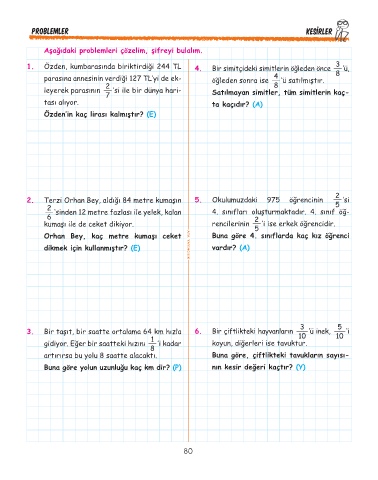 PROBLEMLER
KESİRLER
Aşağıdaki problemleri çözelim, şifreyi bulalım.
1. Özden, kumbarasında biriktirdiği 244 TL
parasına annesinin verdiği 127 TL'yi de ek-
leyerek parasının 2/7 'si ile bir dünya hari-
tası alıyor.
Özden'in kaç lirası kalmıştır? (E)
2. Terzi Orhan Bey, aldığı 84 metre kumaşın
2/6 'sinden 12 metre fazlası ile yelek, kalan
kumaşı ile de ceket dikiyor.
Orhan Bey, kaç metre kumaşı ceket
dikmek için kullanmıştır? (E)
3. Bir taşıt, bir saatte ortalama 64 km hızla
gidiyor. Eğer bir saatteki hızını 1/8 'i kadar
artırırsa bu yolu 8 saatte alacaktı.
Buna göre yolun uzunluğu kaç km dir? (P)
4. Bir simitçideki simitlerin öğleden önce 3/8 'ü,
öğleden sonra ise 4/8 'ü satılmıştır.
Satılmayan simitler, tüm simitlerin kaç-
ta kaçıdır? (A)
5. Okulumuzdaki 975 öğrencinin 2/5 'si
4. sınıfları oluşturmaktadır. 4. sınıf öğ-
rencilerinin 2/5 'i ise erkek öğrencidir.
Buna göre 4. sınıflarda kaç kız öğrenci
vardır? (A)
6. Bir çiftlikteki hayvanların 3/10 'ü inek, 5/10 'i
koyun, diğerleri ise tavuktur.
Buna göre, çiftlikteki tavukların sayısı-
nın kesir değeri kaçtır? (Y)
80